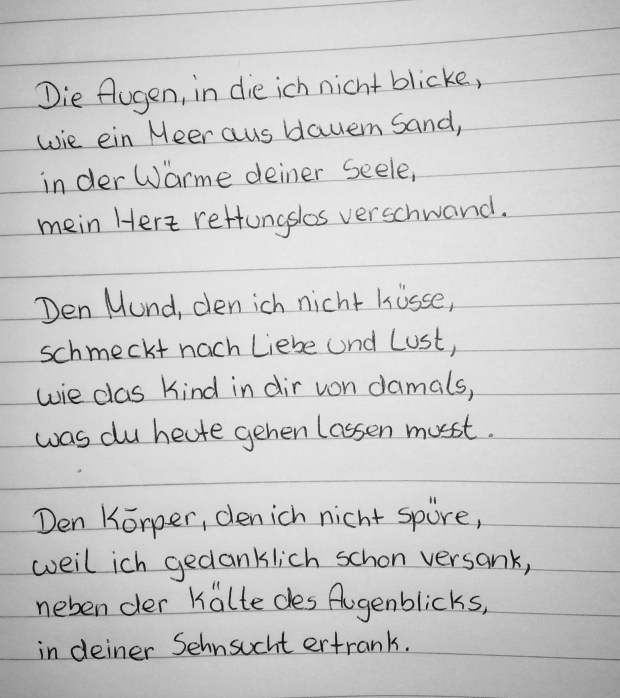 Die Augen, in die ich nicht blicke,
wie ein Meer aus blauem Sand,
in der Wärme deiner Seele,
mein Herz rettungslos verschwand.
Den Mund, den ich nicht küsse,
schmeckt nach Liebe und Lust,
wie das Kind in dir von damals,
was du heute gehen lassen musst.
Den Körper, den ich nicht spüre,
weil ich gedanklich schon versank,
neben der Kälte des Augenblicks,
in deiner Sehnsucht ertrank.